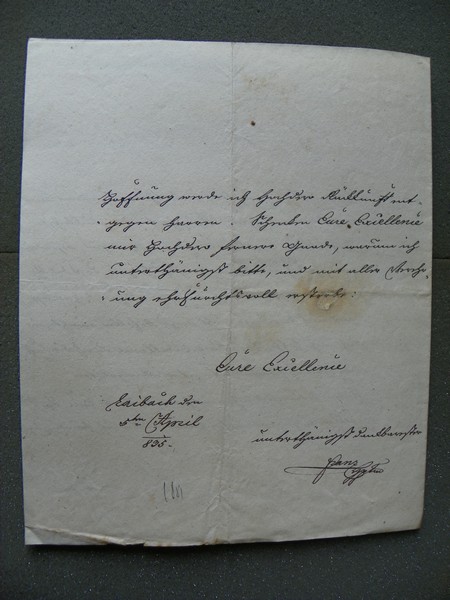 Hoffnung werde ich Hochdero Rückkunft ent-
gegen harren. Schenken Eure Excellenie
mir Hochdero fernere Gnade, warum ich
unterthänigst bitte, und mit aller Verehr-
ung ehrfurchtsvoll ersterbe:
Eure Excellenie
Laibach den
5ten April
835.
unterthänigst dankbarster
Franz